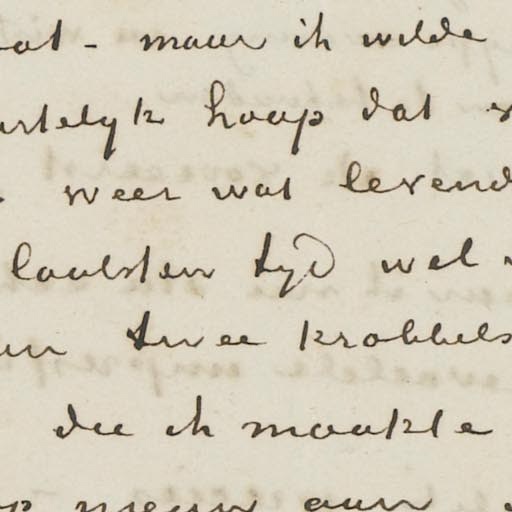 at - maar ik wilde
artelyk hoop dat
weer wat levend
laatsten tyd wel
twee krabbels
die ik maakte
op nieuw aan